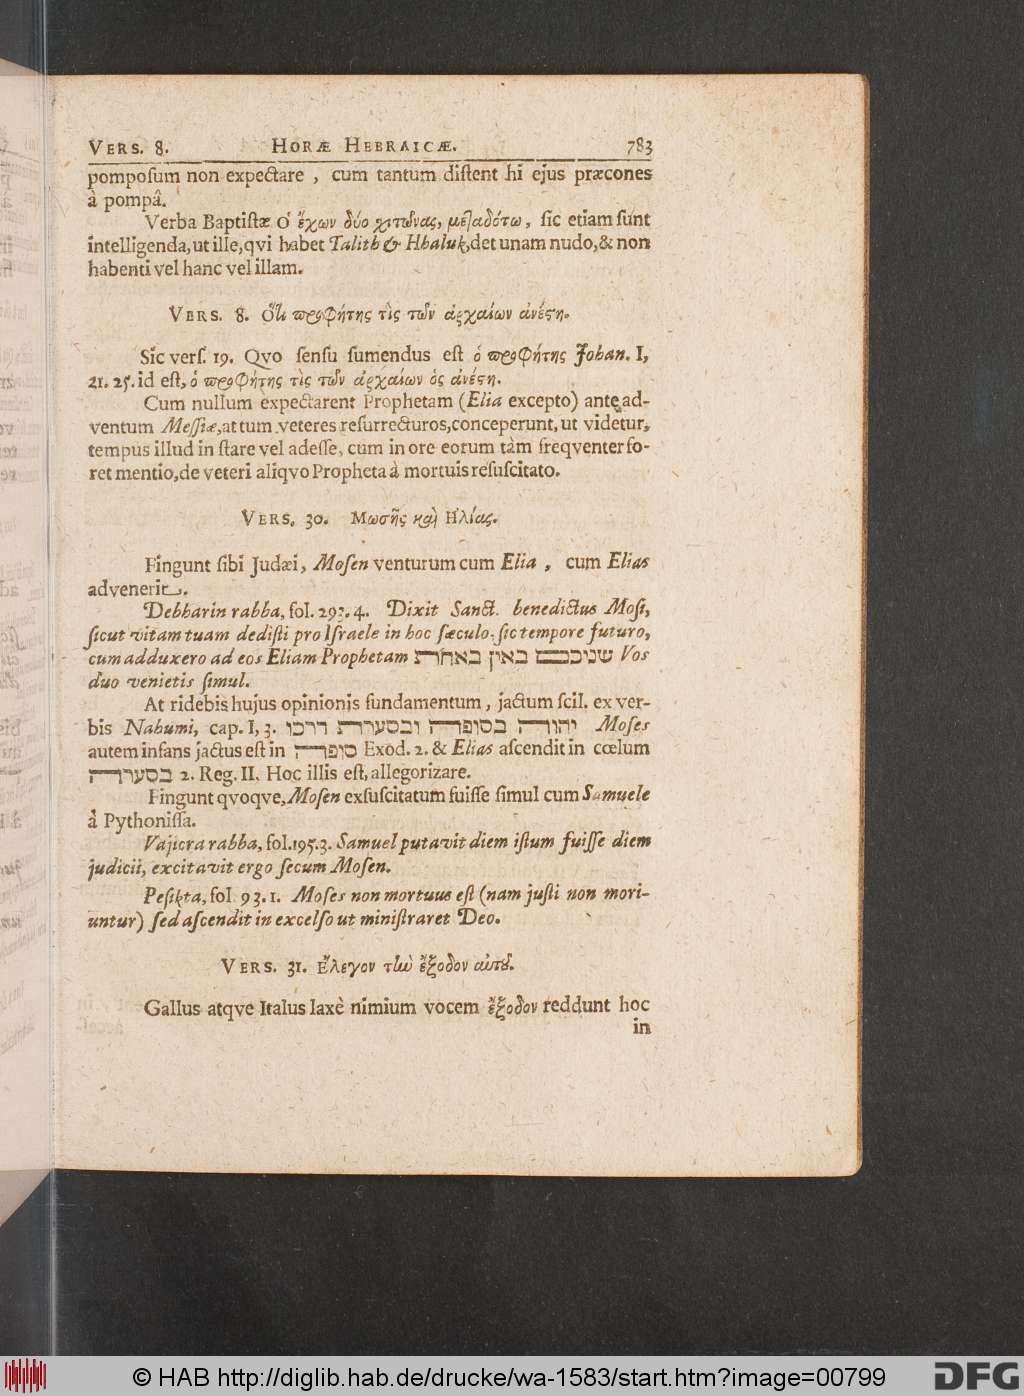 VERS. 8. HORÆ HEBRAICÆ. 783
pomposum non expectare , cum tantum distent hi ejus præcones
à pompâ.
Verba Baptistæ Ὁ ἔχων δύο χιτῶνας, μεταδότω, sic etiam sunt
intelligenda, ut ille, qvi habet Talith & Hhaluk, det unam nudo, & non
habenti vel hanc vel illam.
VERS. 8. Ὅτι προφήτης τὶς τῶν ἀρχαίων ἀνέστη.
Sic vers. 19. Qvo sensu sumendus est ὁ προφήτης Johan. I,
21. 25. id est, ὁ προφήτης τὶς τῶν ἀρχαίων ὁς ἀνέστη.
Cum nullum expectarent Prophetam (Elia excepto) ante ad-
ventum Messiæ, at tum veteres resurrecturos, conceperunt, ut videtur,
tempus illud in stare vel adesse, cum in ore eorum tàm freqventer fo-
ret mentio, de veteri aliqvo Propheta à mortuis resuscitato.
VERS. 30. Μωσῆς καὶ Ηλίας.
Fingunt sibi Judæi, Mosen venturum cum Elia , cum Elias
advenerit.
Debharin rabba, fol. 293. 4. Dixit Sanct. benedictus Mosi,
sicut vitam tuam dedisti pro Israele in hoc sæculo, sic tempore futuro,
cum adduxero ad eos Eliam Prophetam שניכם באין באחת Vos
duo venietis simul.
At ridebis hujus opinionis fundamentum, jactum scil. ex ver-
bis Nahumi, cap. I, 3. יהוה בסופה ובסערת דרכו Moses
autem infans jactus est in סופה Exod. 2. & Elias ascendit in cœlum
בסערה 2. Reg. II. Hoc illis est, allegorizare.
Fingunt qvoqve, Mosen exsuscitatum fuisse simul cum Samuele
à Pythonissa.
Vajicra rabba, fol. 195. 3. Samuel putavit diem istum fuisse diem
judicii, excitavit ergo secum Mosen.
Pesikta, fol 93. 1. Moses non mortuus est (nam justi non mori-
untur) sed ascendit in excelso ut ministraret Deo.
VERS. 31. Ἔλεγον τὴν ἔξοδον αὐτοῦ.
Gallus atqve Italus laxè nimium vocem ἔξοδον reddunt hoc
in
© HAB http://diglib.hab.de/drucke/wa-1583/start.htm?image=00799
DFG